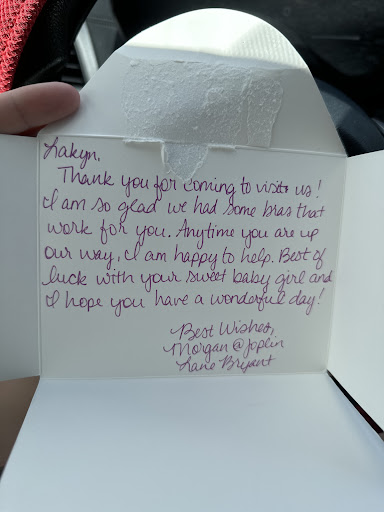 Lakyn,
Thank you for coming to visit us!
I am so glad we had some bras that
work for you. Anytime you are up
our way, I am happy to help. Best of
luck with your sweet baby girl and
I hope you have a wonderful day!
Best Wishes,
Morgan @ Joplin
Lane Bryant